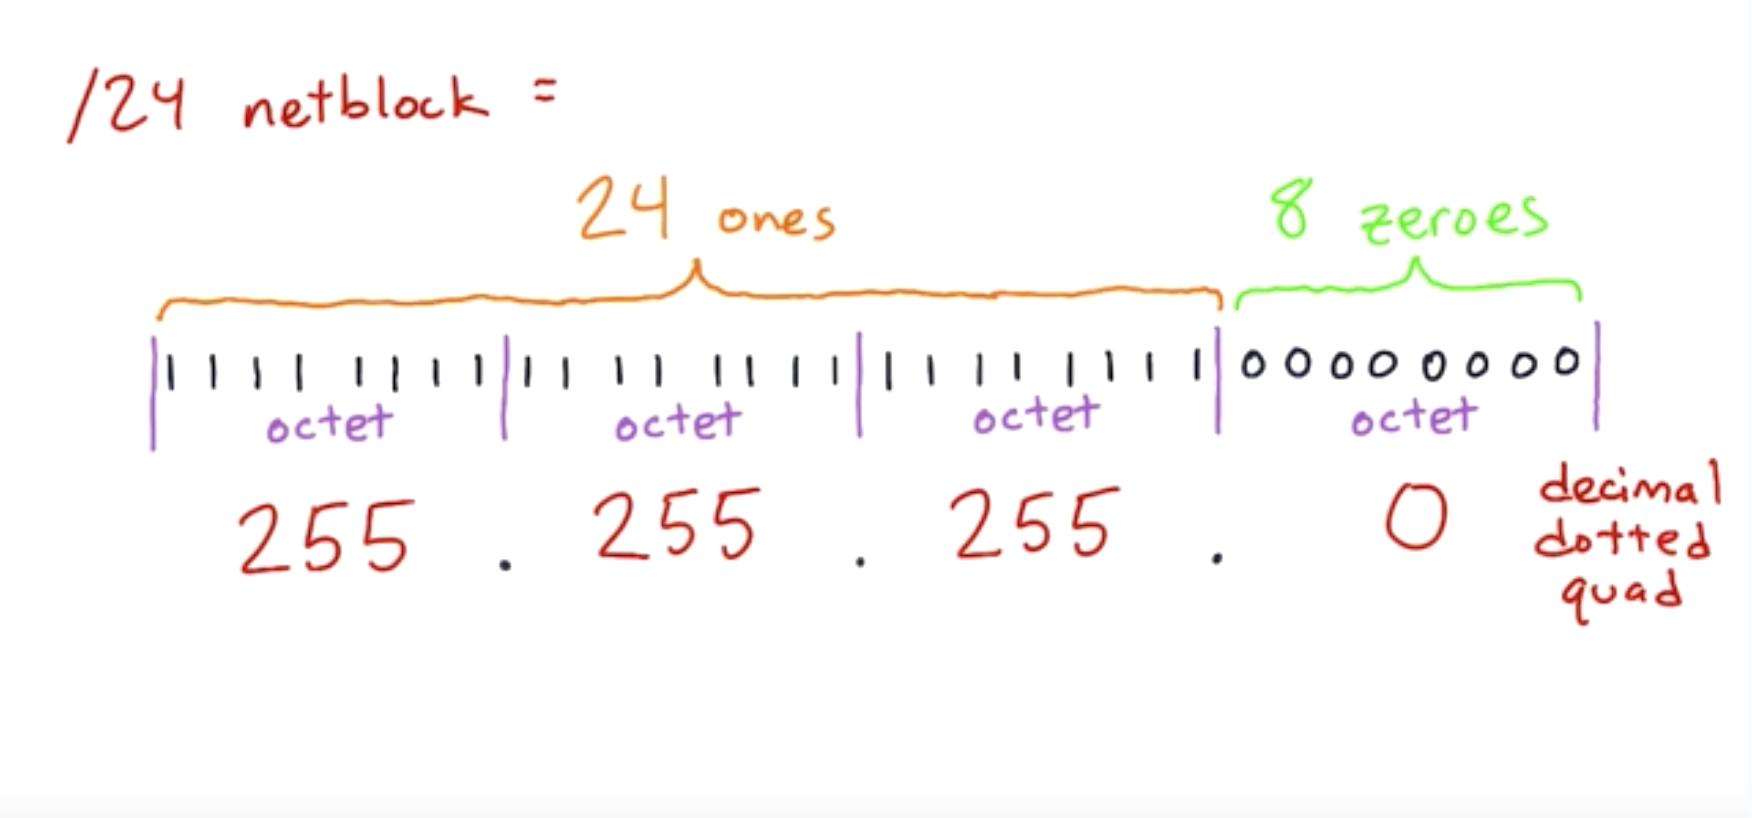 /24 netblock =
24 ones 8 zeroes
| 1 1 1 1 1 1 1 1 | 1 1 1 1 1 1 1 1 | 1 1 1 1 1 1 1 1 | 0 0 0 0 0 0 0 0 |
octet octet octet octet
255 . 255 . 255 . 0
decimal
dotted
quad